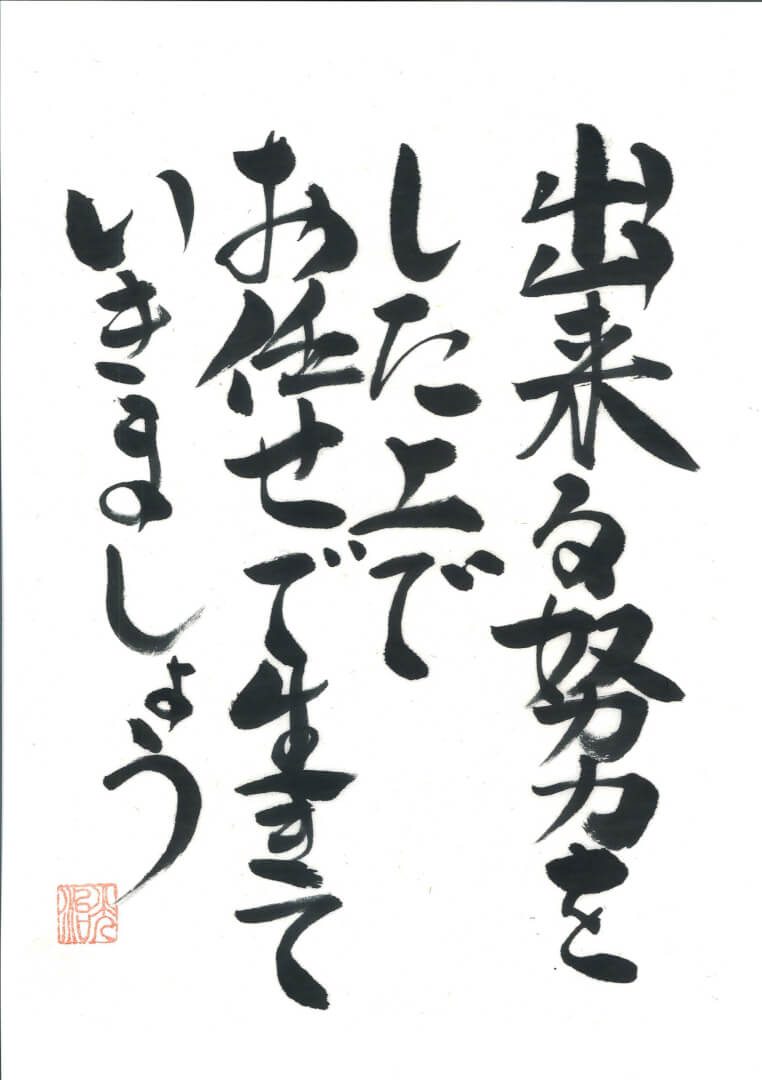 出来る努力を
した上で
お任せで生きて
いきましょう